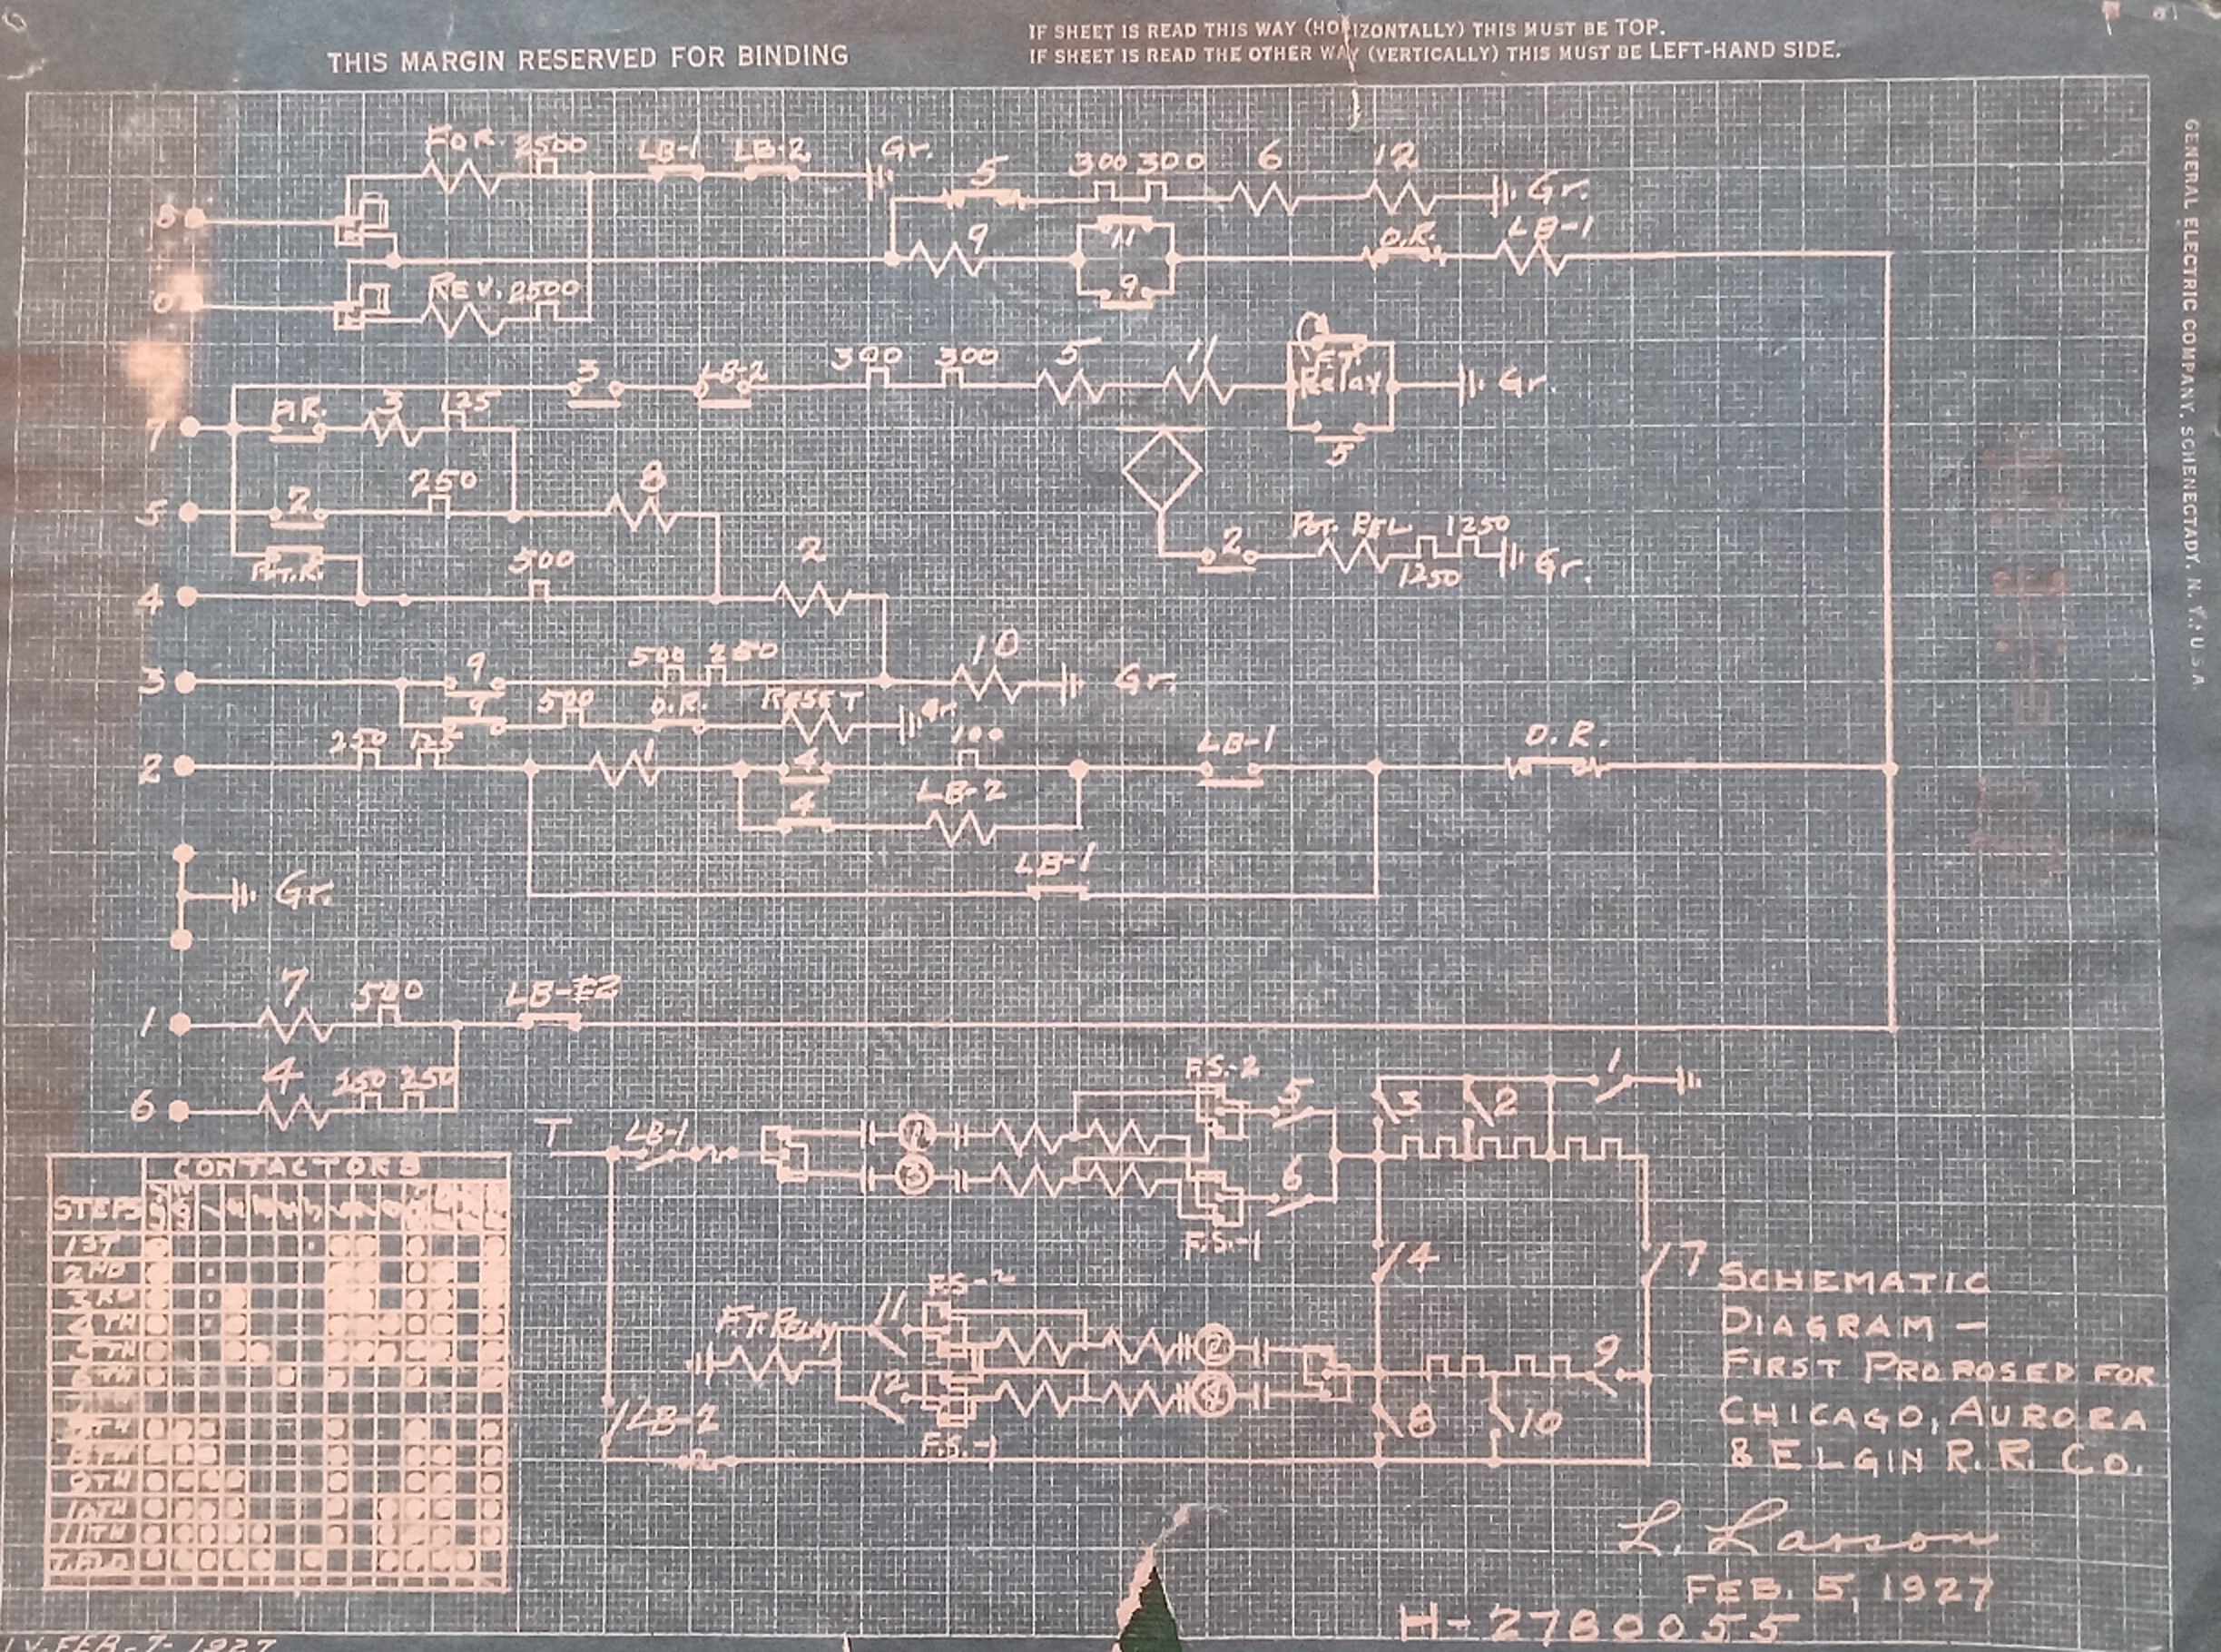 THIS MARGIN RESERVED FOR BINDING
IF SHEET IS READ THIS WAY (HORIZONTALLY) THIS MUST BE TOP.
IF SHEET IS READ THE OTHER WAY (VERTICALLY) THIS MUST BE LEFT-HAND SIDE.
GENERAL ELECTRIC COMPANY, SCHENECTADY, N. Y., U.S.A.
FOR. 2500 LB-1 LB-2 Gr.
5 300 300 6 12 Gr.
8
9 11 O.R. LB-1
0 REV. 2500 9
3 LB-2 300 300 5 11 F.T. Relay Gr.
7 3 125
5
5 2 250 8
2 POT. REL 1250 Gr.
1250
500 2
4
3 9 500 250 10 Gr.
500 O.R. RESET Gr.
2 250 125 1 4 100 LB-1 O.R.
4 LB-2
LB-1
Gr.
1 7 500
6 4 250 250
T LB-1 F.S.-2 5 3 2 1
3 6
F.S.-1
4 7
F.T. RELAY 11 F.S.-2 2 9
12 4
LB-2 F.S.-1 8 10
CONTACTORS
STEPS
1ST
2ND
3RD
4TH
5TH
6TH
8TH
9TH
10TH
11TH
SCHEMATIC
DIAGRAM —
FIRST PROPOSED FOR
CHICAGO, AURORA
& ELGIN R. R. CO.
L. Larson
FEB. 5, 1927
H-2780055
FEB-7-1927